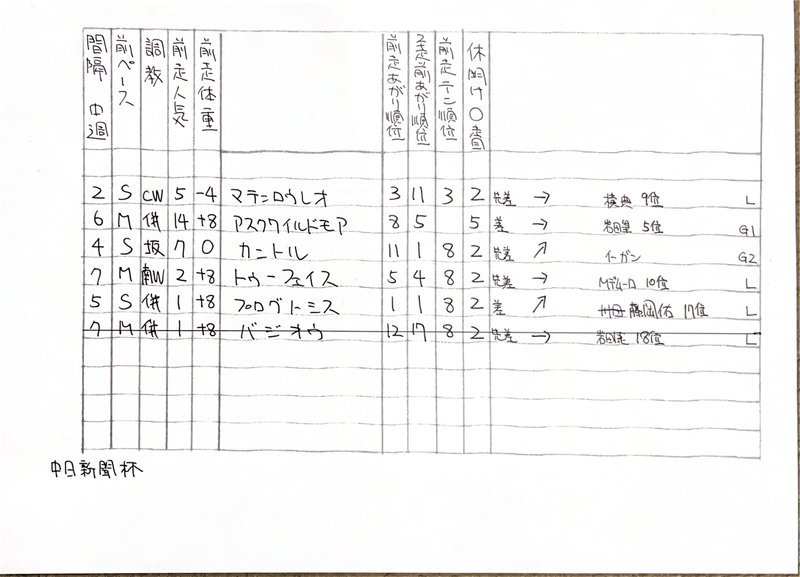 間隔 中 週 前ペース 調教 前走人気 前走体重 前走あがり順位 2走前あがり順位 前走テン順位 休明け〇番
2 S CW 5 -4 マテンロウレオ 3 11 3 2 先差 → 横典 9位 L
6 M 併 14 +8 アスクワイルドモア 8 5 5 差 → 岩田望 5位 G1
4 S 坂 7 0 カントル 11 1 8 2 先差 ↗ イーガン G2
7 M 南W 2 +8 トゥーフェイス 5 4 8 2 先差 → Mデムーロ 10位 L
5 S 併 1 +8 プログノーシス 1 1 8 2 差 ↗ 藤岡佑 17位 L
7 M 併 1 +8 バジオウ 12 17 8 2 先差 → 岩田康 18位 L
中日新聞杯